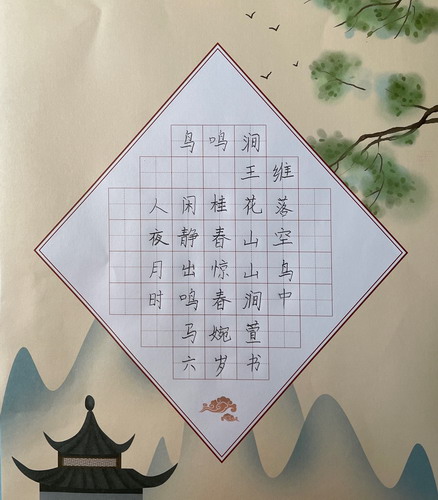 鸟鸣涧
王维
人闲桂花落
夜静春山空
月出惊山鸟
时鸣春涧中
马婉萱
六岁书